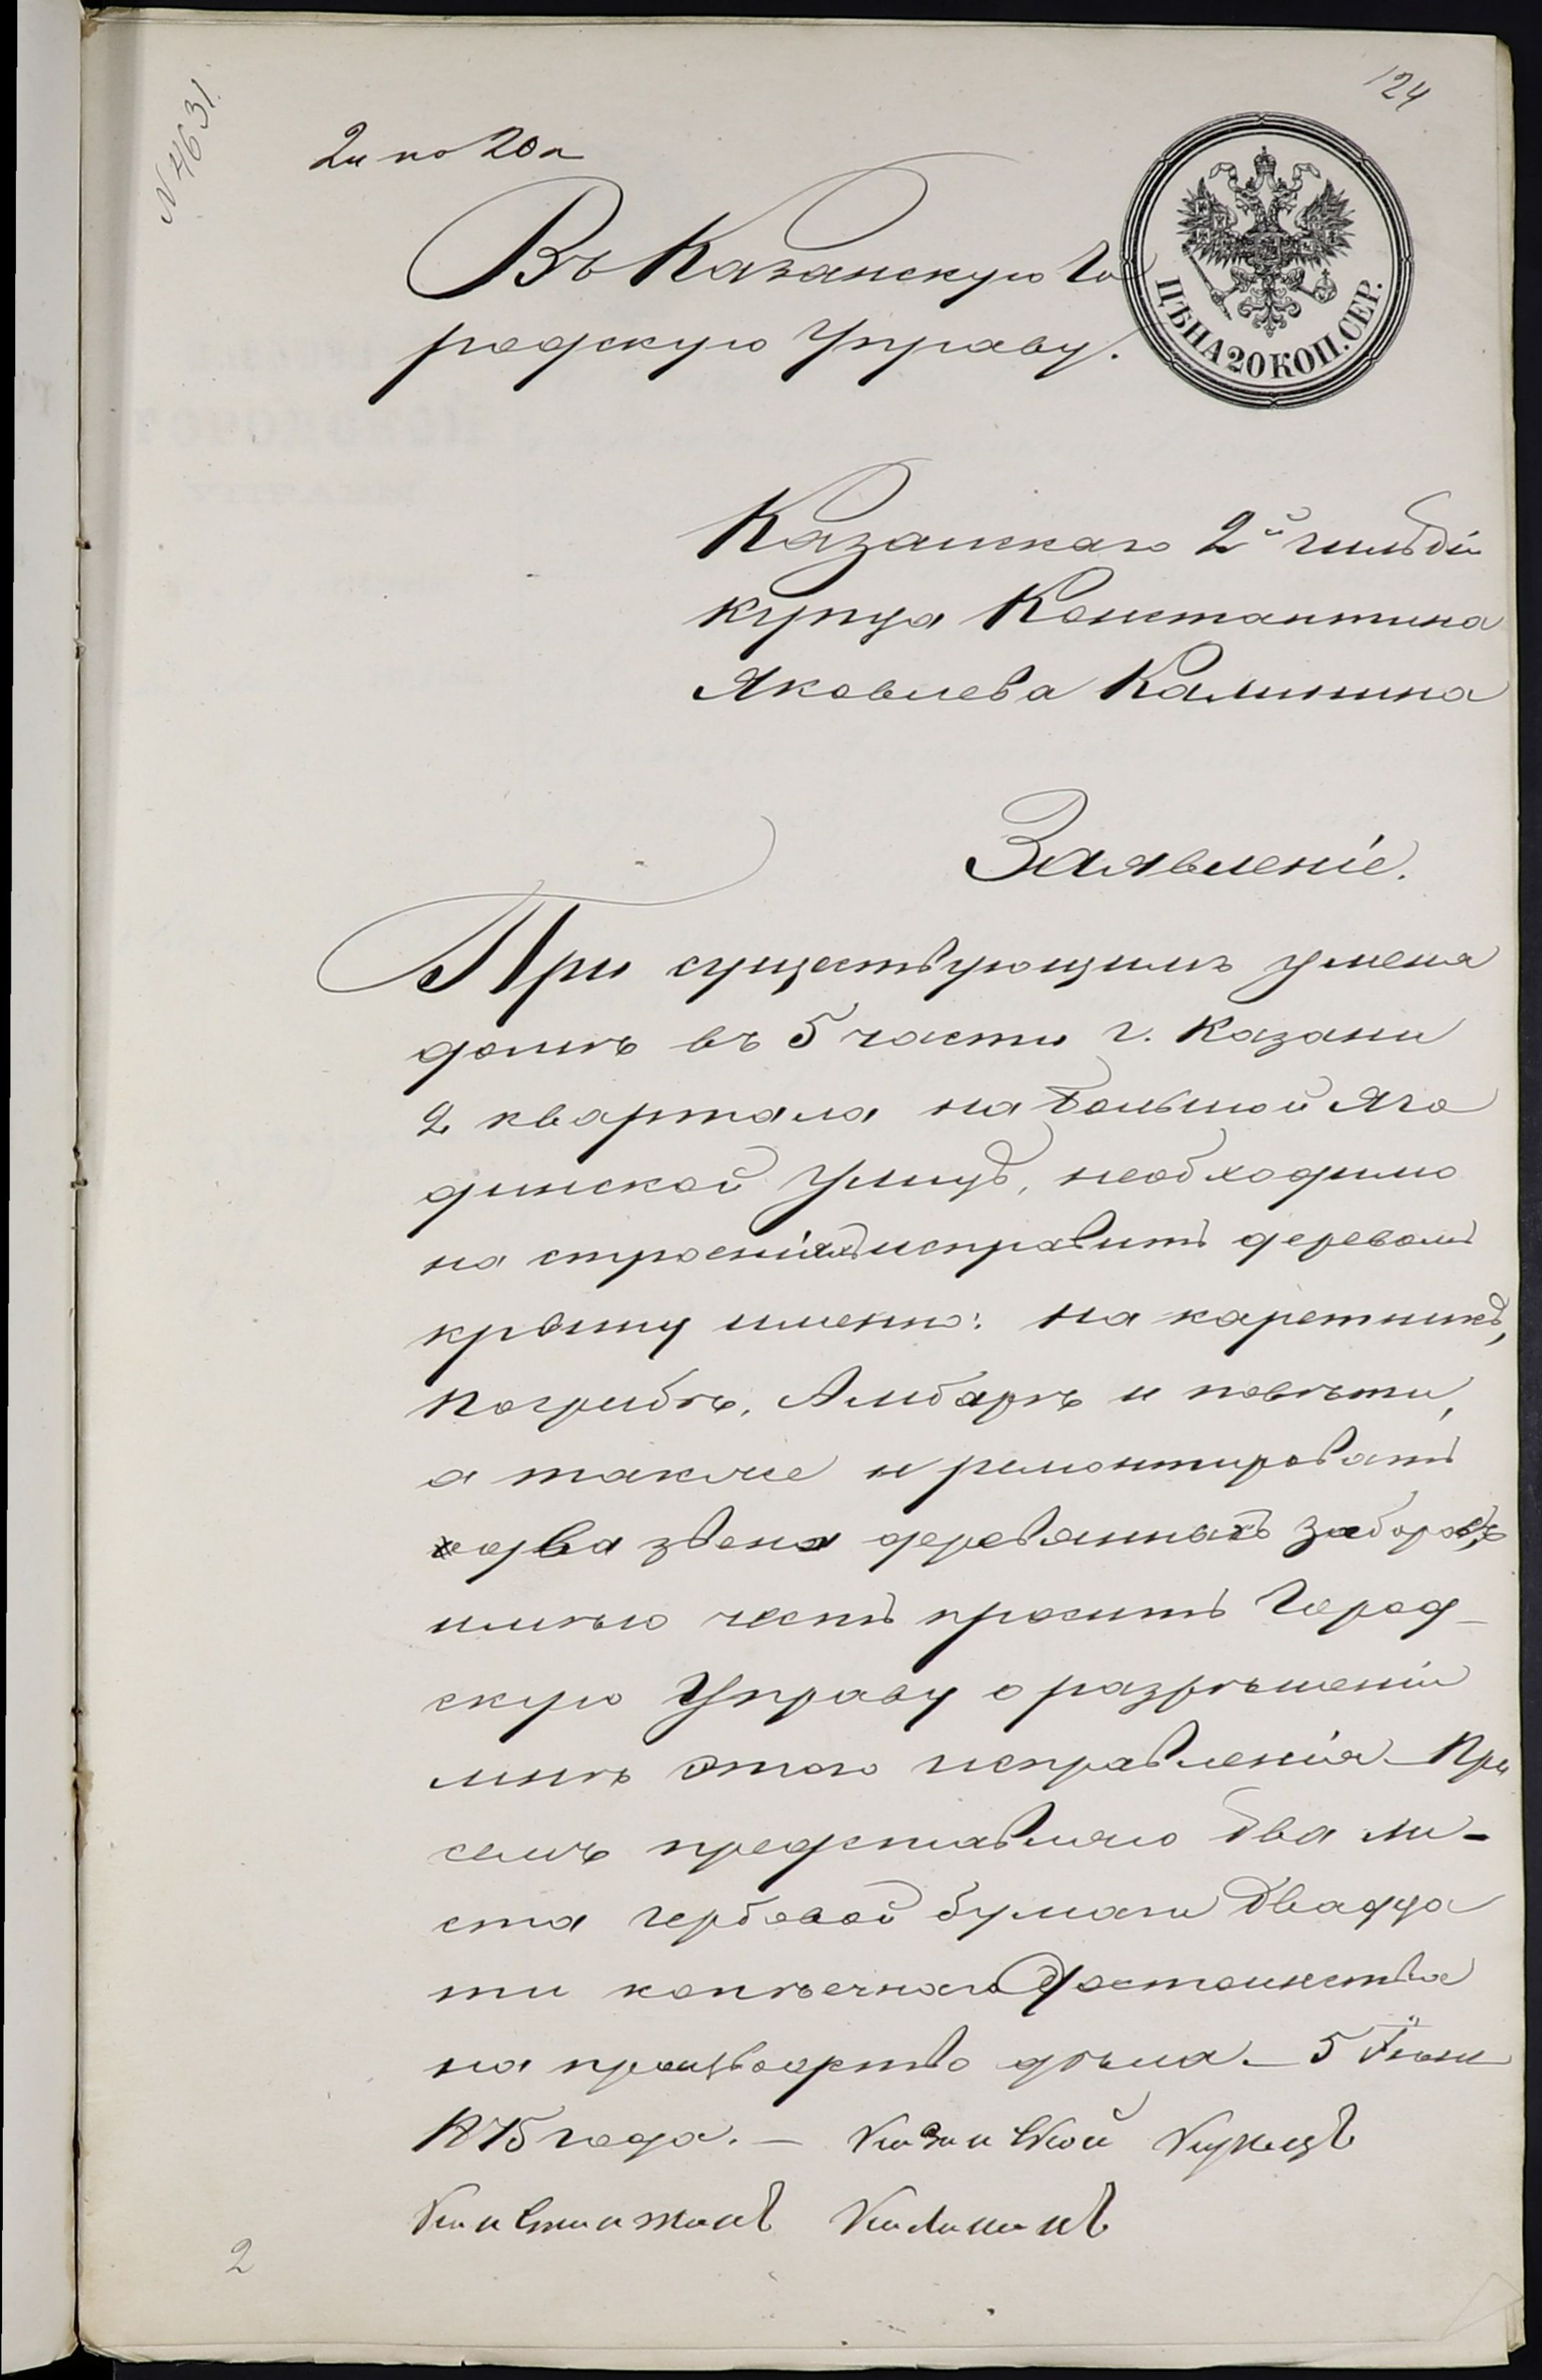 124
N 4631.
2 л по 20 к
Въ Казанскую Го
родскую Управу.
ЦѢНА 20 КОП. СЕР.
Казанскаго 2й гильдіи
купца Константина
Яковлева Калинина
Заявленіе.
При существующемъ у меня
домѣ въ 5 части г. Казани
2 квартала на Большой Яго
динской улицѣ, необходимо
на строеніяхъ исправить деревомъ
крышу именно: на каретникѣ,
Погрибѣ, Амбарѣ и повѣти,
а также и ремонтировать
два звена деревянныхъ заборовъ,
имѣю честь просить Город-
скую Управу о разрѣшеніи
мнѣ этого исправленія – При
семъ представляю два ли-
ста гербовой бумаги двадца
ти копѣечнаго достоинства
на производство дѣла. – 5 Іюня
1875 года. – Казанской Купецъ
Канстантинъ Калининъ
2